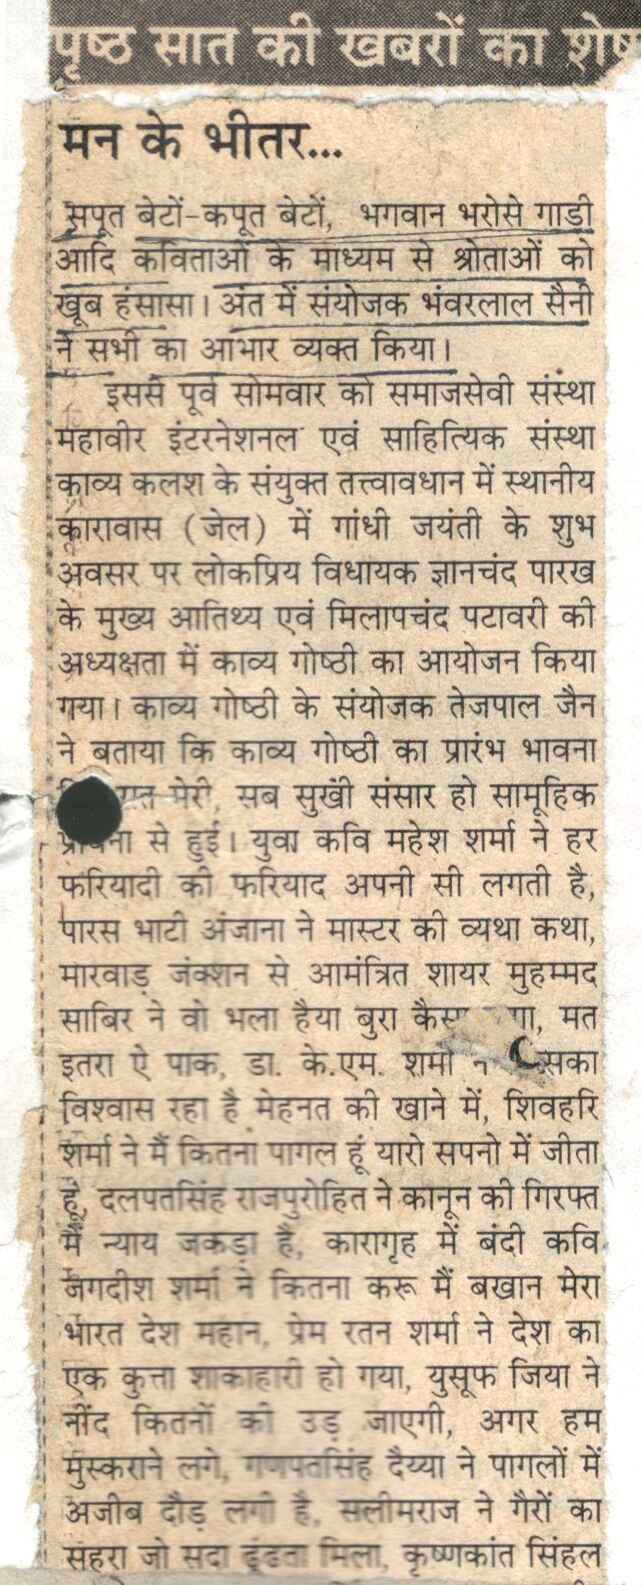 पृष्ठ सात की खबरों का शेष
मन के भीतर...
सपूत बेटों-कपूत बेटों, भगवान भरोसे गाडी
आदि कविताओं के माध्यम से श्रोताओं को
खूब हंसासा। अंत में संयोजक भंवरलाल सैनी
ने सभी का आभार व्यक्त किया।
इससे पूर्व सोमवार को समाजसेवी संस्था
महावीर इंटरनेशनल एवं साहित्यिक संस्था
काव्य कलश के संयुक्त तत्त्वावधान में स्थानीय
कारावास (जेल) में गांधी जयंती के शुभ
अवसर पर लोकप्रिय विधायक ज्ञानचंद पारख
के मुख्य आतिथ्य एवं मिलापचंद पटावरी की
अध्यक्षता में काव्य गोष्ठी का आयोजन किया
गया। काव्य गोष्ठी के संयोजक तेजपाल जैन
ने बताया कि काव्य गोष्ठी का प्रारंभ भावना
मेरी, सब सुखी संसार हो सामूहिक
से हुई। युवा कवि महेश शर्मा ने हर
फरियादी की फरियाद अपनी सी लगती है,
पारस भाटी अंजाना ने मास्टर की व्यथा कथा,
मारवाड़ जंक्शन से आमंत्रित शायर मुहम्मद
साबिर ने वो भला हैया बुरा मत
इतरा ऐ पाक, डा. के.एम. शर्मा
विश्वास रहा है मेहनत की खाने में, शिवहरि
शर्मा ने मैं कितना पागल हूं यारो सपनो में जीता
हूं, दलपतसिंह राजपुरोहित ने कानून की गिरफ्त
में न्याय जकड़ा है, कारागृह में बंदी कवि
जगदीश शर्मा ने कितना करू मैं बखान मेरा
भारत देश महान, प्रेम रतन शर्मा ने देश का
एक कुत्ता शाकाहारी हो गया, युसूफ जिया ने
नींद कितनों की उड़ जाएगी, अगर हम
मुस्कराने लगे, गणपतसिंह दैय्या ने पागलों में
अजीब दौड़ लगी है, सलीमराज ने गैरों का
सहरा जो सदा ढूंढता मिला, कृष्णकांत सिंहल